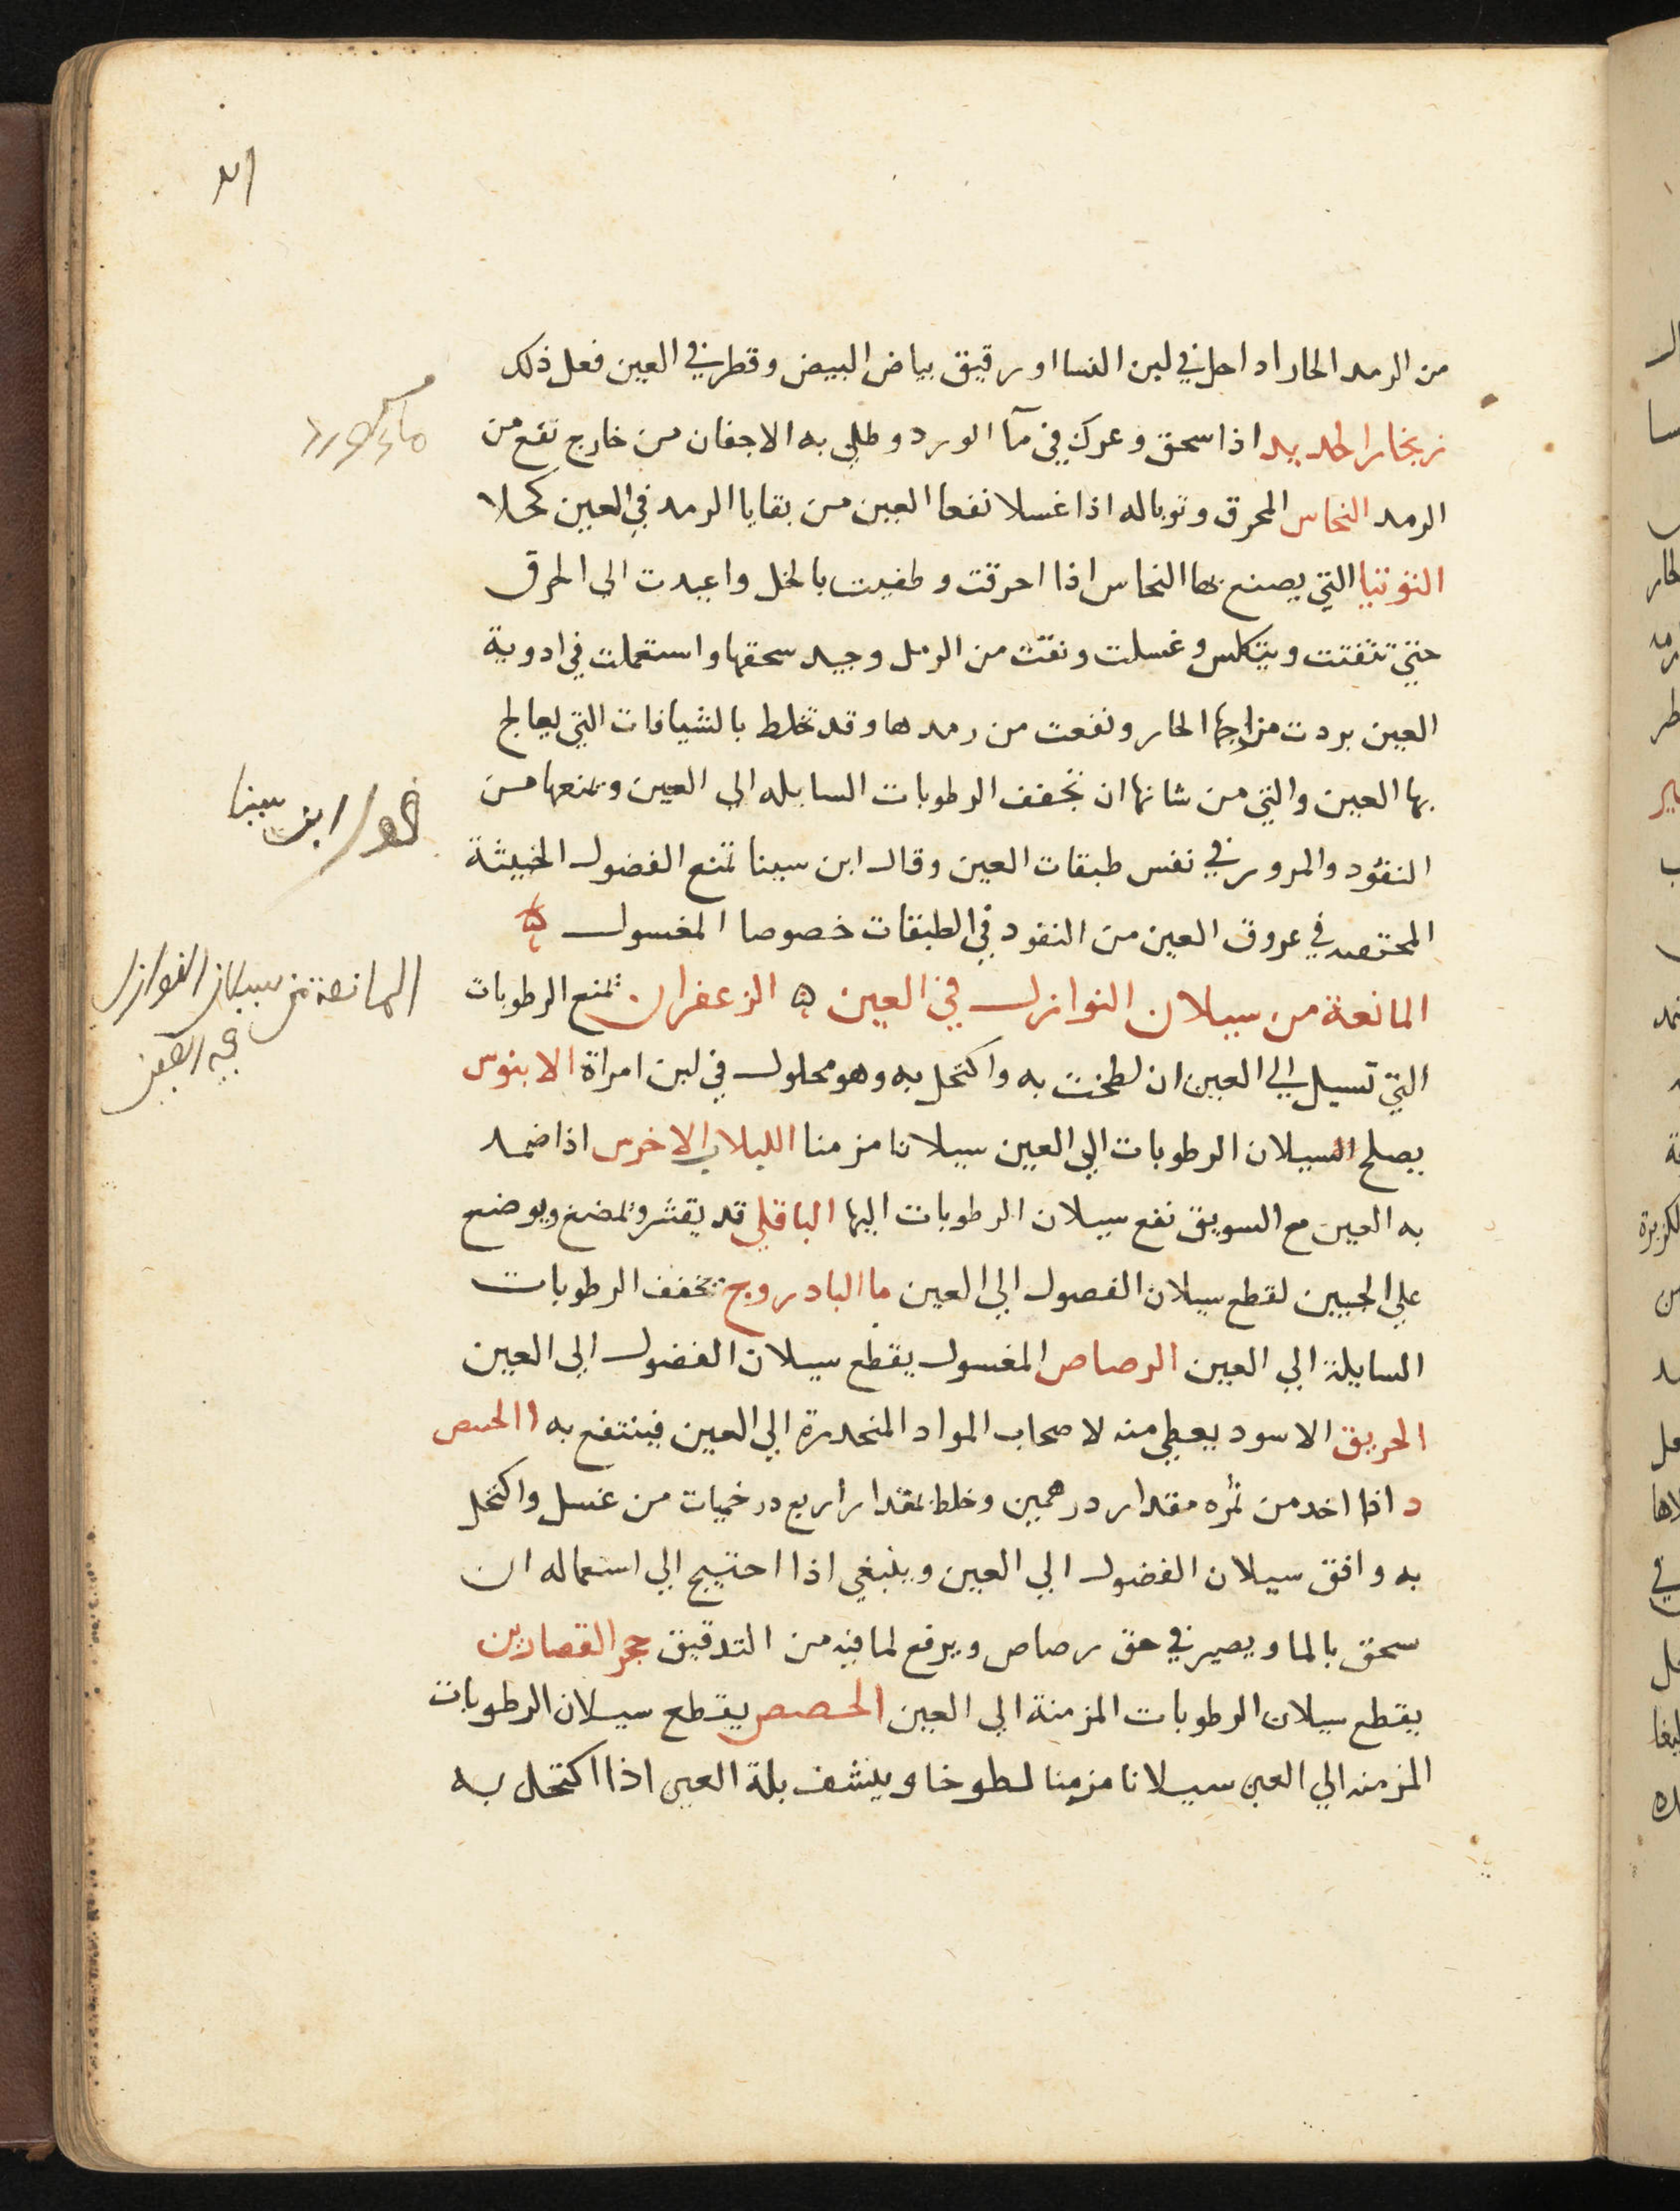 من الرمد الحار اذا حل في لبن النسا او رقيق بياض البيض وقطر في العين فعل ذلك
زنجار الحديد اذا سحق وعرك في مآ الورد وطلي به الاجفان من خارج نفع من
الرمد النحاس المحرق وتوباله اذا غسلا نفعا العين من بقايا الرمد في العين كحلا
التوتيا التي يصنع بها النحاس اذا احرقت وطفيت بالخل واعيدت الى الحرق
حتي تتفتت ويتكلس وغسلت ونقت من الرمل وجيد سحقها واستعملت في ادوية
العين بردت مزاجها الحار ونفعت من رمدها وقد تخلط بالشيافات التي يعالج
بها العين والتي من شانها ان تجفف الرطوبات السايله الى العين وتمنعها من
النفود والمرور في نفس طبقات العين وقال ابن سينا تمنع الفضول الخبيثة
المحتقنه في عروق العين من النفود في الطبقات خصوصا المغسول ه
المانعة من سيلان النوازل في العين ه الزعفران تمنع الرطوبات
التي تسيل الي العين ان لطخت به واكتحل به وهو محلول في لبن امراة الابنوس
يصلح السيلان الرطوبات الي العين سيلانا مزمنا اللبلاب الاخرس اذا ضمد
به العين مع السويق نفع سيلان الرطوبات اليها الباقلي قد يقشر وتمضغ ويوضع
علي الجبين لقطع سيلان الفصول الي العين ما البادروج تجفف الرطوبات
السايلة الي العين الرصاص المغسول يقطع سيلان الفضول الي العين
الخريق الاسود يعطي منه لاصحاب المواد المنحدرة الي العين فينتفع به االحسص
د اذا اخد من ثمره مقدار درهمين وخلط بمقدار اربع درخميات من عسل واكتحل
به وافق سيلان الفضول الي العين وينبغي اذا احتيج الي استعماله ان
سحق بالما ويصير في حق رصاص ويرفع لما فيه من التدقيق حجر القصارين
يقطع سيلان الرطوبات المزمنة الي العين الحصص يقطع سيلان الرطوبات
المزمنه الي العين سيلانا مزمنا لطوخا وينشف بلة العين اذا اكتحل به
ابن سينا
المانعة من سيلان النوازل